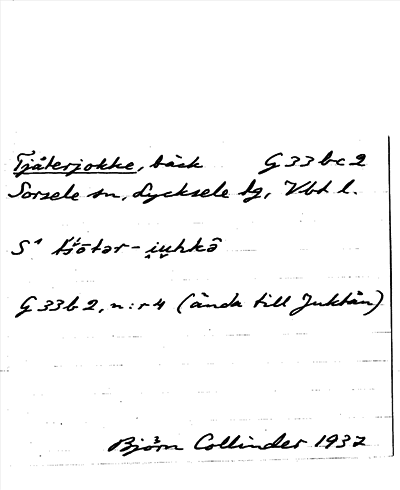 Tjåterjokke, bäck G 33 bc 2
Sorsele sn, Lycksele lg, Vbt l.
S¹ tšōtər-i̯uhkə̂
G 33 b 2, n:r 4 (ända till Juktån)
Björn Collinder 1937